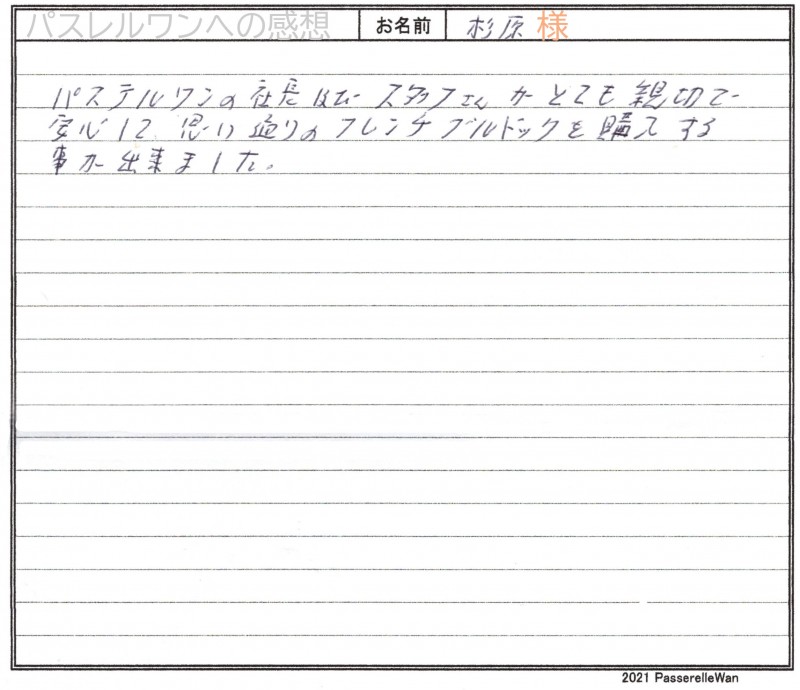 パスレルワンへの感想 お名前 杉原 様
パステルワンの社長はじめスタッフさんがとても親切で
安心して思い通りのフレンチブルドックを購入する
事が出来ました。
2021 PasserelleWan